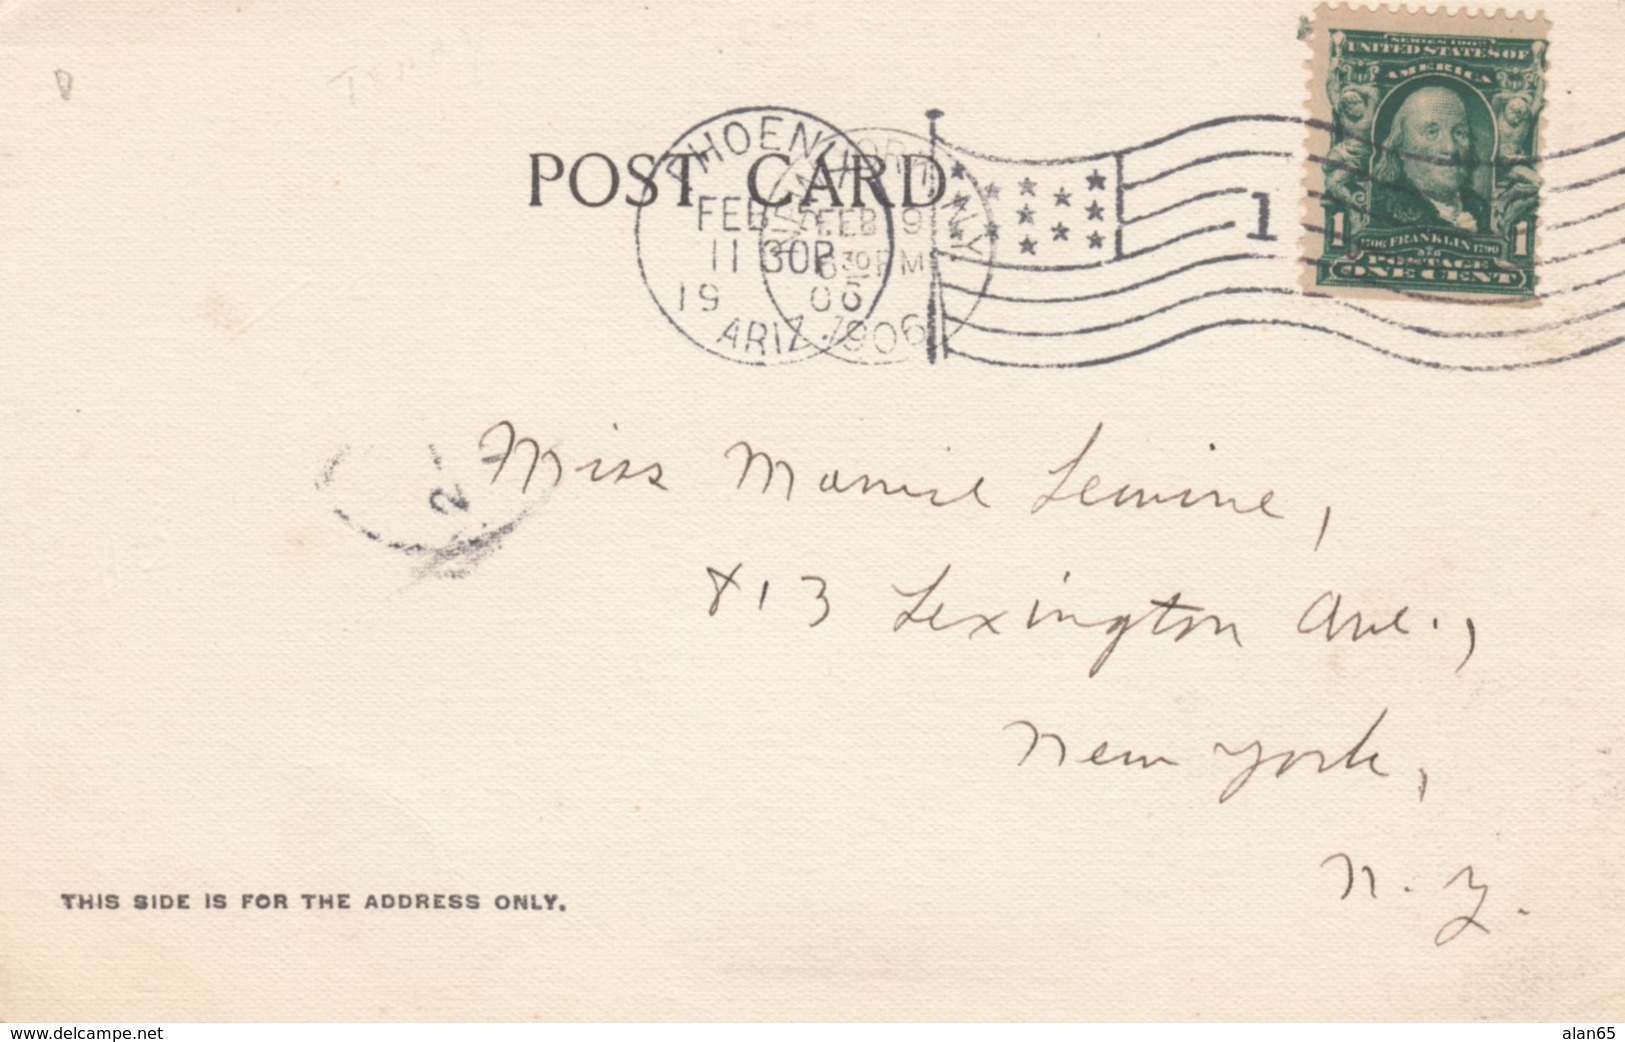 SERIES 1902
UNITED STATES OF
AMERICA
POST CARD
PHOENIX
FEB 5
11 30P
19 06
ARIZ.
NEW YORK, N.Y.
FEB 9
6 30 PM
1906
1
1 1
1706 FRANKLIN 1790
POSTAGE
ONE CENT
2
Miss Mamie Lewine,
813 Lexington Ave.,
New York,
N. Y.
THIS SIDE IS FOR THE ADDRESS ONLY.
www.delcampe.net
alan65